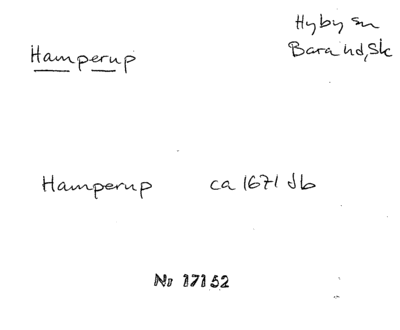 Hyby sn
Bara hd, Sk
Hamperup
Hamperup ca 1671 Jb
Nr 17152